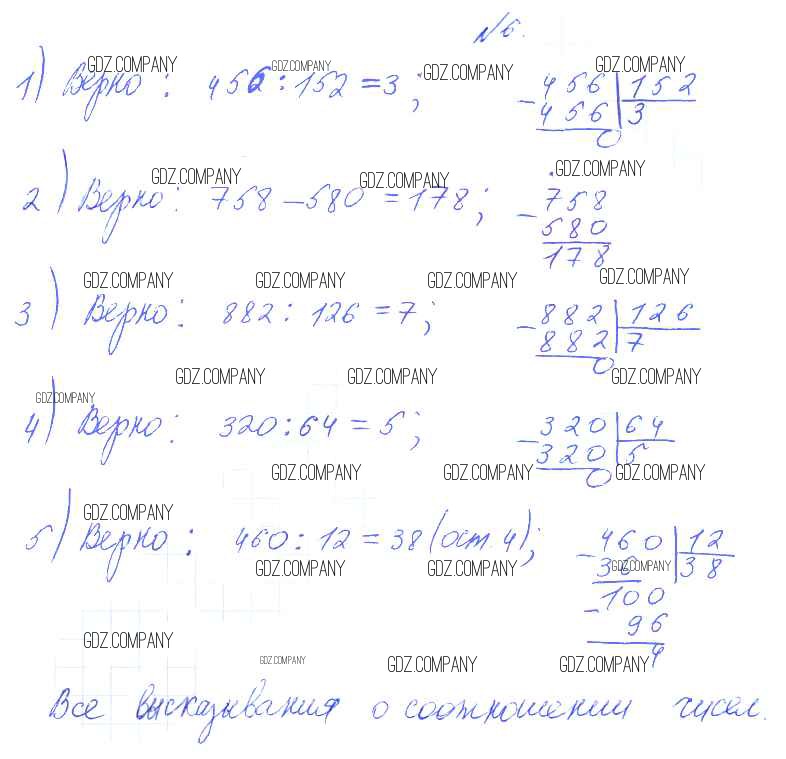 №6.
GDZ.COMPANY GDZ.COMPANY GDZ.COMPANY GDZ.COMPANY
1) Верно: 456 : 152 = 3; - 456 | 152
456 | 3
0
GDZ.COMPANY GDZ.COMPANY GDZ.COMPANY
2) Верно: 758 - 580 = 178; - 758
580
178
GDZ.COMPANY GDZ.COMPANY GDZ.COMPANY GDZ.COMPANY
3) Верно: 882 : 126 = 7; - 882 | 126
882 | 7
0
GDZ.COMPANY GDZ.COMPANY GDZ.COMPANY
GDZ.COMPANY
4) Верно: 320 : 64 = 5; - 320 | 64
320 | 5
0
GDZ.COMPANY GDZ.COMPANY GDZ.COMPANY
GDZ.COMPANY
5) Верно: 460 : 12 = 38 (ост. 4); - 460 | 12
36 | 38
GDZ.COMPANY GDZ.COMPANY GDZ.COMPANY
- 100
96
4
GDZ.COMPANY
GDZ.COMPANY GDZ.COMPANY GDZ.COMPANY
Все высказывания о соотношении чисел.